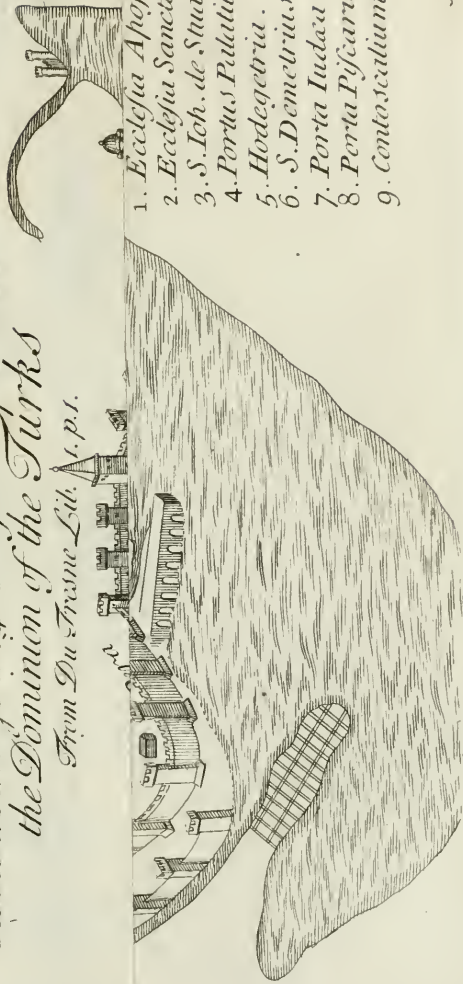 the Dominion of the Turks
From Du Fresne Lib. 1. p. 1.
1. Ecclesia Apos
2. Ecclesia Sancta
3. S. Ioh. de Stud
4. Portus Palatii
5. Hodegetria.
6. S. Demetrius
7. Porta Iudæa
8. Porta Piscari
9 Contoscalium